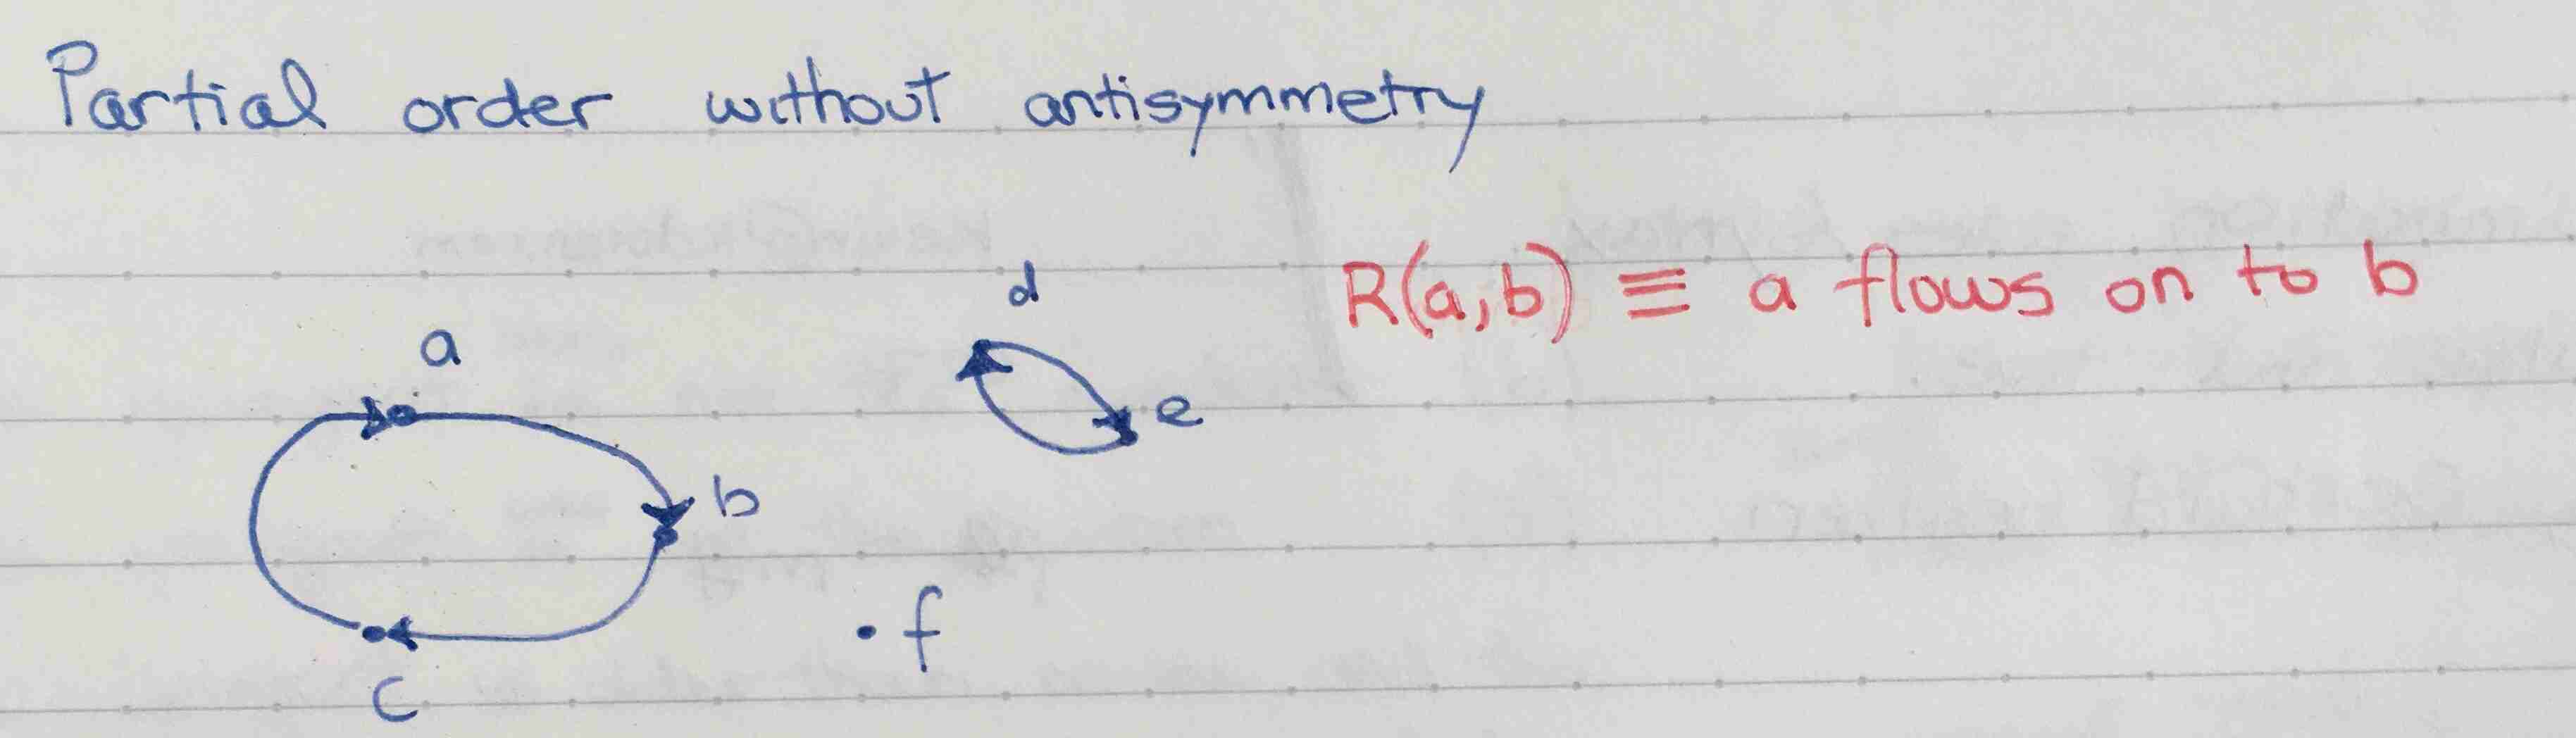 Partial order without antisymmetry
R(a,b) ≡ a flows on to b
d
a
e
b
f
c